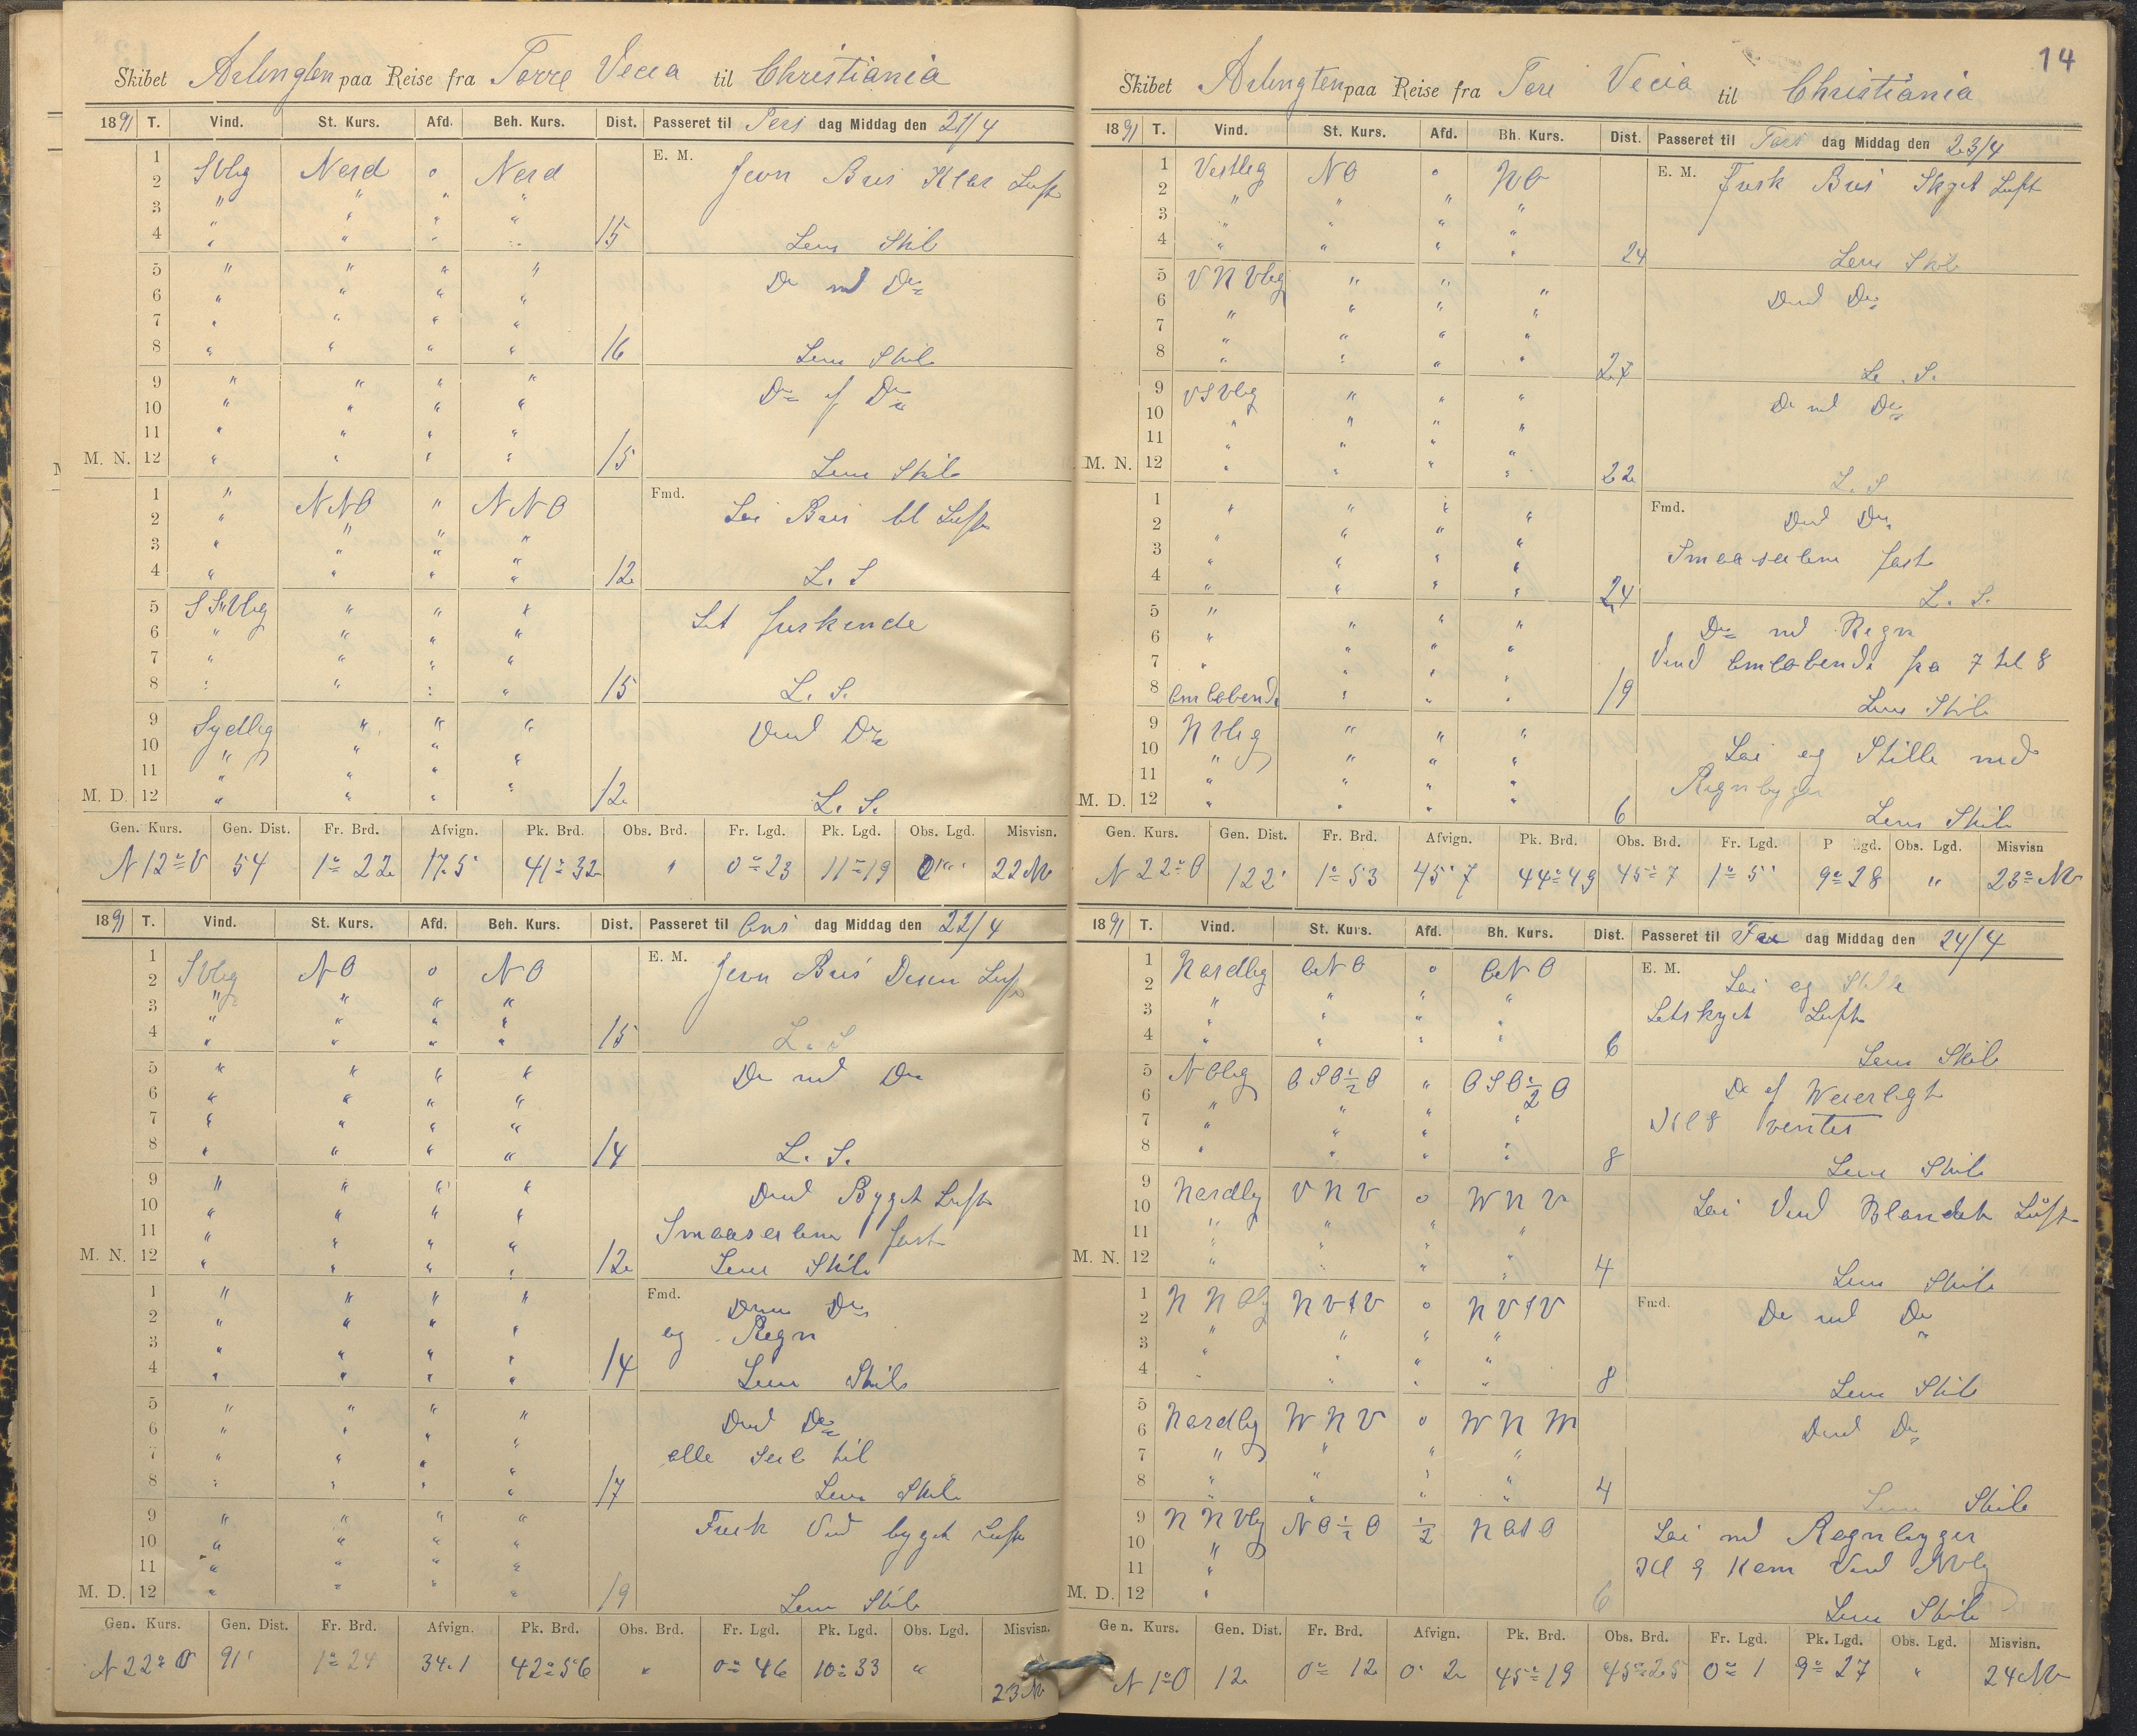 Skibet Arlington paa Reise fra Torre Vecia til Christiania
1891 T. Vind. St. Kurs. Afd. Beh. Kurs. Dist. Passeret til Ters dag Middag den 21/4
E. M.
1 SVlig Nord o Nord Jevn Bris Klar Luft
2 " " " "
3 " " " "
4 " " " " 15 Lens Skib
5 " " " " Do md Do
6 " " " "
7 " " " "
8 " " " " 16 Lens Skib
9 " " " " Do Do
10 " " " "
11 " " " "
M. N. 12 " " " " 15 Lens Skib
Fmd.
1 " NNO " NNO Lei Bris bl Luft
2 " " " "
3 " " " "
4 " " " " 12 L. S
5 SSVlig " " " Let friskende
6 " " " "
7 " " " "
8 " " " " 15 L. S.
9 Sydlig " " " Vind Do
10 " " " "
11 " " " "
M. D. 12 " " " " 12 L. S.
Gen. Kurs. Gen. Dist. Fr. Brd. Afvign. Pk. Brd. Obs. Brd. Fr. Lgd. Pk. Lgd. Obs. Lgd. Misvisn.
N 12° V 54 1° 22 17.5 41° 32 " 0° 23 11° 19 22 NV
1891 T. Vind. St. Kurs. Afd. Beh. Kurs. Dist. Passeret til Ons dag Middag den 22/4
E. M.
1 SVlig NO o NO Jevn Bris Luft
2 " " " "
3 " " " "
4 " " " " 15 L. S
5 " " " " Do md Do
6 " " " "
7 " " " "
8 " " " " 14 L. S.
9 " " " " Byget Luft
10 " " " "
11 " " " " Smaaseilene fast
M. N. 12 " " " " 12 Lens Skib
Fmd.
1 " " " " Do
2 " " " " og Regn
3 " " " "
4 " " " " 14 Lens Skib
5 " " " " Do
6 " " " "
7 " " " " alle Seil til
8 " " " " 17 Lens Skib
9 " " " " Frisk Vind bygget Luft
10 " " " "
11 " " " "
M. D. 12 " " " " 19 Lens Skib
Gen. Kurs. Gen. Dist. Fr. Brd. Afvign. Pk. Brd. Obs. Brd. Fr. Lgd. Pk. Lgd. Obs. Lgd. Misvisn.
N 22° O 91' 1° 24 34.1 42° 56 " 0° 46 10° 33 " 23 NV
14
Skibet Arlington paa Reise fra Tore Vecia til Christiania
1891 T. Vind. St. Kurs. Afd. Bh. Kurs. Dist. Passeret til Tors dag Middag den 23/4
E. M.
1 Vestlig NO o NO Frisk Bris Skyet Luft
2 " " " "
3 " " " "
4 " " " " 24 Lens Skib
5 VNVlig " " " Do
6 " " " "
7 " " " "
8 " " " " 27 L. S.
9 VSVlig " " " Do md Do
10 " " " "
11 " " " "
M. N. 12 " " " " 22 L. S
Fmd.
1 " " " " Do
2 " " " "
3 " " " " Smaaseilene fast
4 " " " " 24 L. S.
5 " " " " Do md Regn
6 " " " " Vind omløbende fra 7 til 8
7 " " " "
8 omløbende " " " 19 Lens Skib
9 NVlig " " " Lei og Stille md
10 " " " "
11 " " " " Regnbyger
M. D. 12 " " " " 6 Lens Skib
Gen. Kurs. Gen. Dist. Fr. Brd. Afvign. Pk. Brd. Obs. Brd. Fr. Lgd. P Lgd. Obs. Lgd. Misvisn
N 22° O 122' 1° 53 45' 7 44° 49 45° 7 1° 5' 9° 28 " 23° NV
1891 T. Vind. St. Kurs. Afd. Bh. Kurs. Dist. Passeret til Fre dag Middag den 24/4
E. M.
1 Nordlig ONO o ONO Lei og Stille
2 " " " "
3 " " " " Letskyet Luft
4 " " " " 6 Lens Skib
5 NOlig OSO½O " OSO½O
6 " " " "
7 " " " "
8 " " " " 8 Lens Skib
9 Nordlig VNV o WNV Lei Vind Blandet Luft
10 " " " "
11 " " " "
M. N. 12 " " " " 4 Lens Skib
Fmd.
1 NNOlig NVtV o NVtV Do md Do
2 " " " "
3 " " " "
4 " " " " 8 Lens Skib
5 Nordlig WNV o WNW Do
6 " " " "
7 " " " "
8 " " " " 4 Lens Skib
9 NNVlig NO½O ½ NOtO Lei md Regnbyger
10 "
11 " Kl 9 Kom Vind NVlig
M. D. 12 " 6 Lens Skib
Gen. Kurs. Gen. Dist. Fr. Brd. Afvign. Pk. Brd. Obs. Brd. Fr. Lgd. Pk. Lgd. Obs. Lgd. Misvisn.
N 1° O 12 0° 12 0' 2 45° 19 45° 25 0° 1 9° 27 " 24 NV